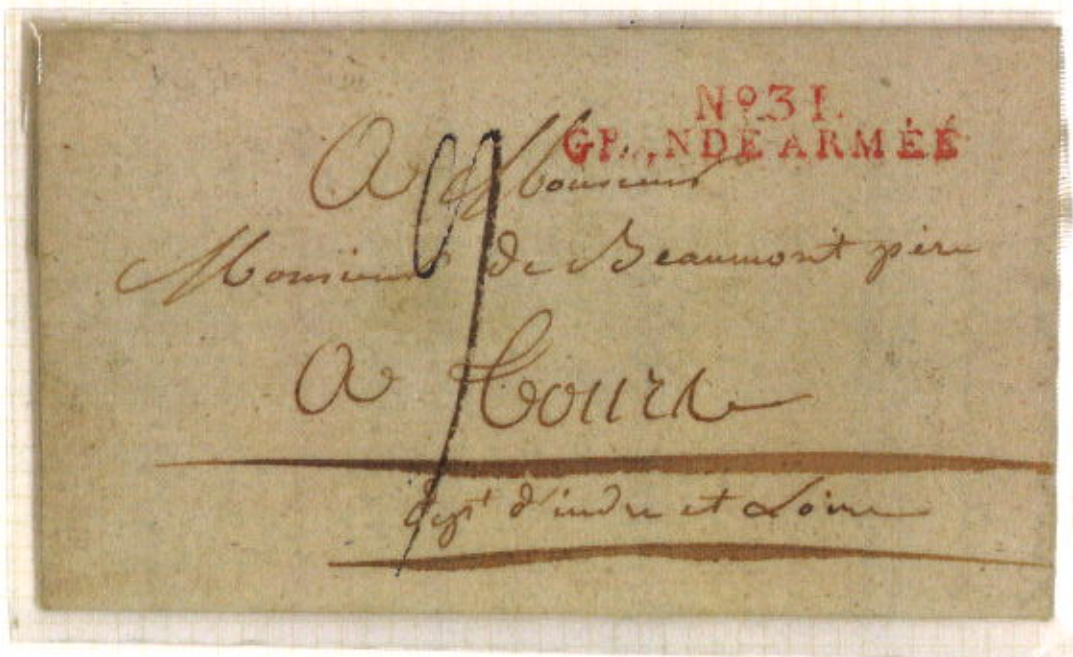 Nº31.
GRANDE ARMÉE
A Monsieur
Monsieur de Beaumont père
A Tours
dept d'indre et Loire